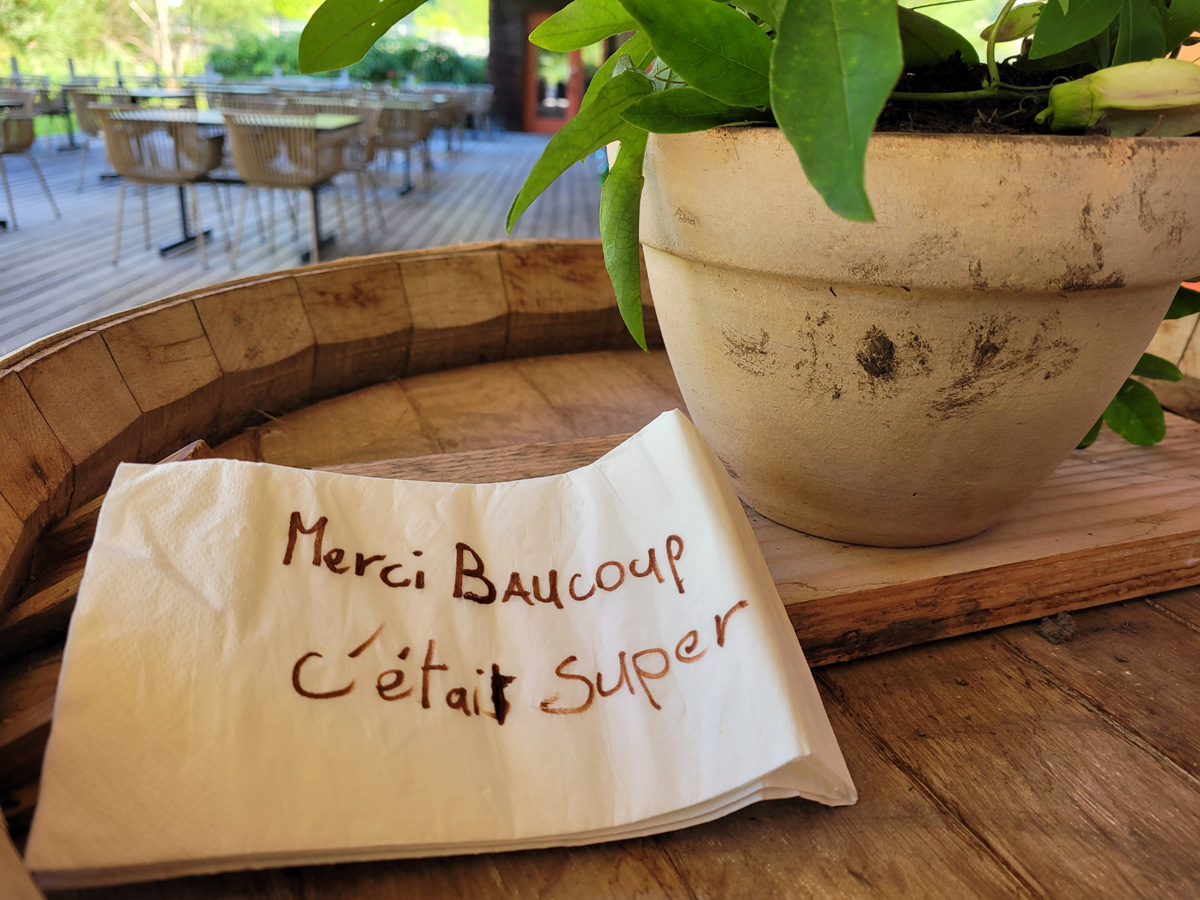 Merci BAUCOUP
C'était Super